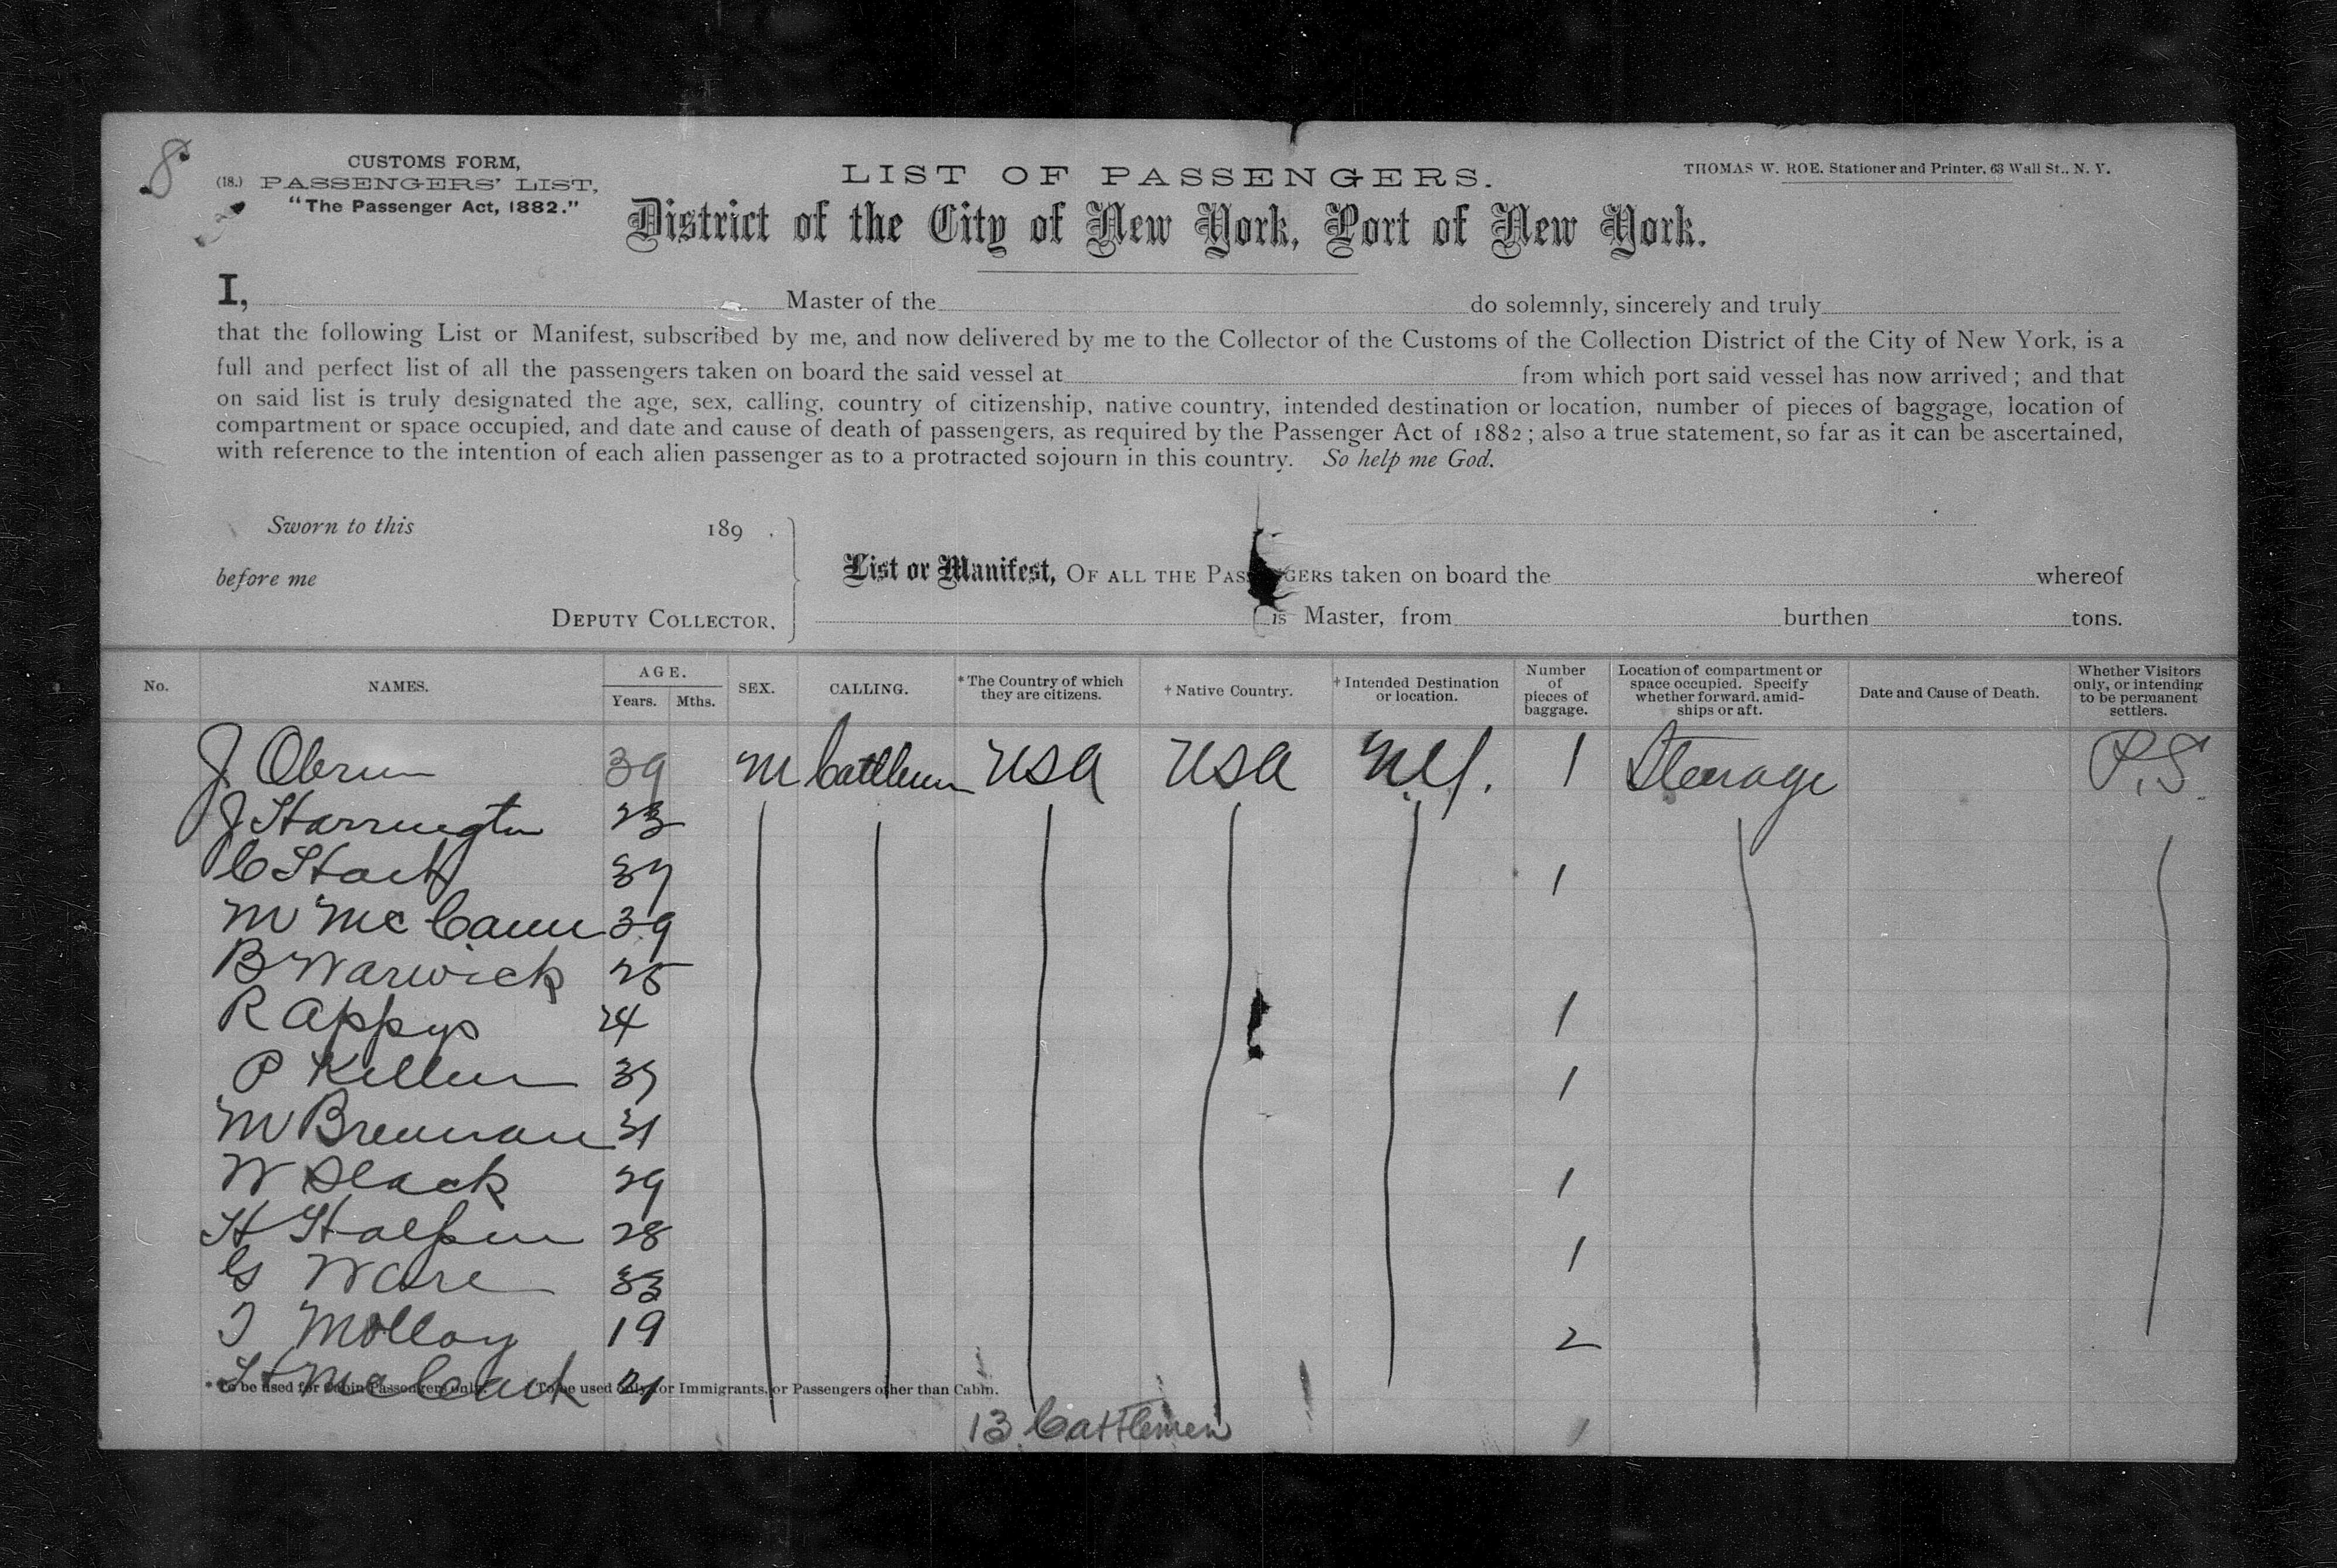 8
CUSTOMS FORM,
(18.) PASSENGERS' LIST,
"The Passenger Act, 1882."
LIST OF PASSENGERS.
THOMAS W. ROE, Stationer and Printer, 63 Wall St., N. Y.
District of the City of New York, Port of New York.
I, Master of the do solemnly, sincerely and truly
that the following List or Manifest, subscribed by me, and now delivered by me to the Collector of the Customs of the Collection District of the City of New York, is a
full and perfect list of all the passengers taken on board the said vessel at from which port said vessel has now arrived; and that
on said list is truly designated the age, sex, calling, country of citizenship, native country, intended destination or location, number of pieces of baggage, location of
compartment or space occupied, and date and cause of death of passengers, as required by the Passenger Act of 1882; also a true statement, so far as it can be ascertained,
with reference to the intention of each alien passenger as to a protracted sojourn in this country. So help me God.
Sworn to this 189 .
before me
DEPUTY COLLECTOR.
List or Manifest, OF ALL THE PASSENGERS taken on board the whereof
is Master, from burthen tons.
No. NAMES. AGE. Years. Mths. SEX. CALLING. *The Country of which they are citizens. †Native Country. †Intended Destination or location. Number of pieces of baggage. Location of compartment or space occupied. Specify whether forward, amidships or aft. Date and Cause of Death. Whether Visitors only, or intending to be permanent settlers.
J Obrien 39 M Cattlemen USA USA N.Y. 1 Steerage P.S.
J Harrington 23
C Stack 37 1
M McCann 39
B Warwick 25
R Appys 24 1
P Killen 35 1
M Brennan 31
W Slack 29 1
H Halpin 28 1
G Ware 33
T Molloy 19 2
21
* To be used for Cabin Passengers only. † To be used only for Immigrants, or Passengers other than Cabin.
13 Cattlemen 1